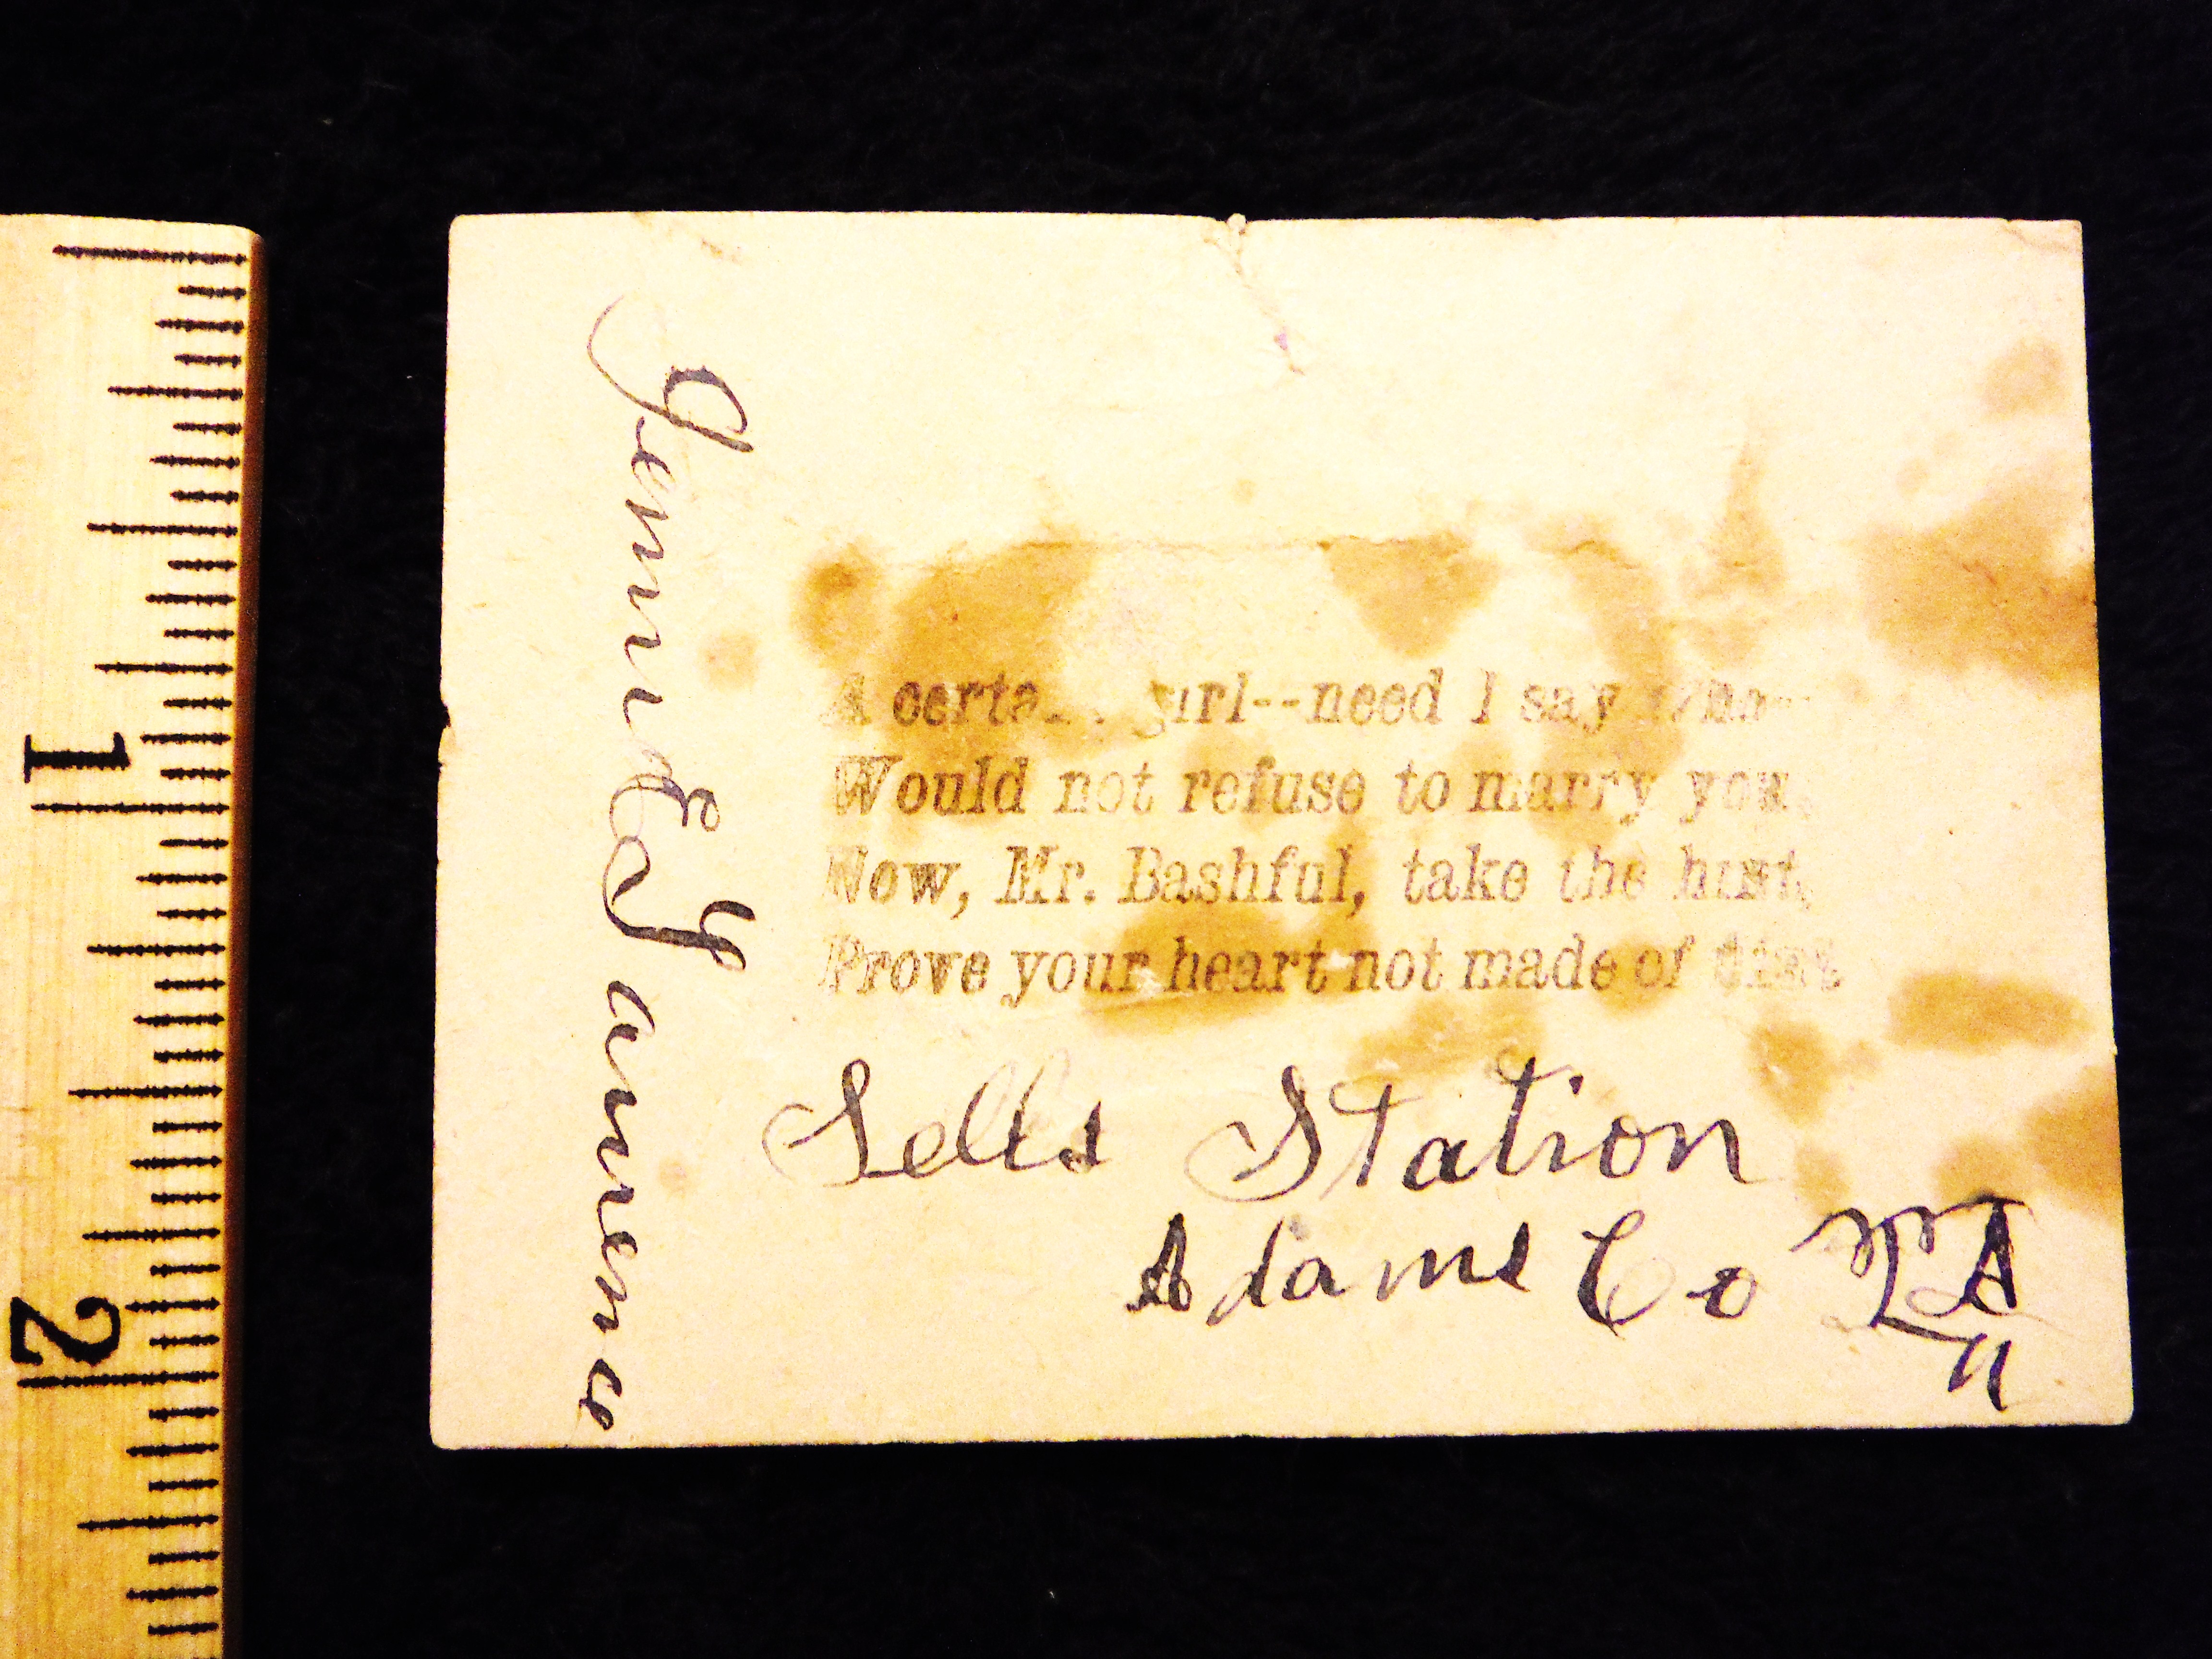 A certa.. girl--need I say who--
Would not refuse to marry you,
Now, Mr. Bashful, take the hint,
Prove your heart not made of flint
Sells Station
Adams Co
Jennie E
1
2